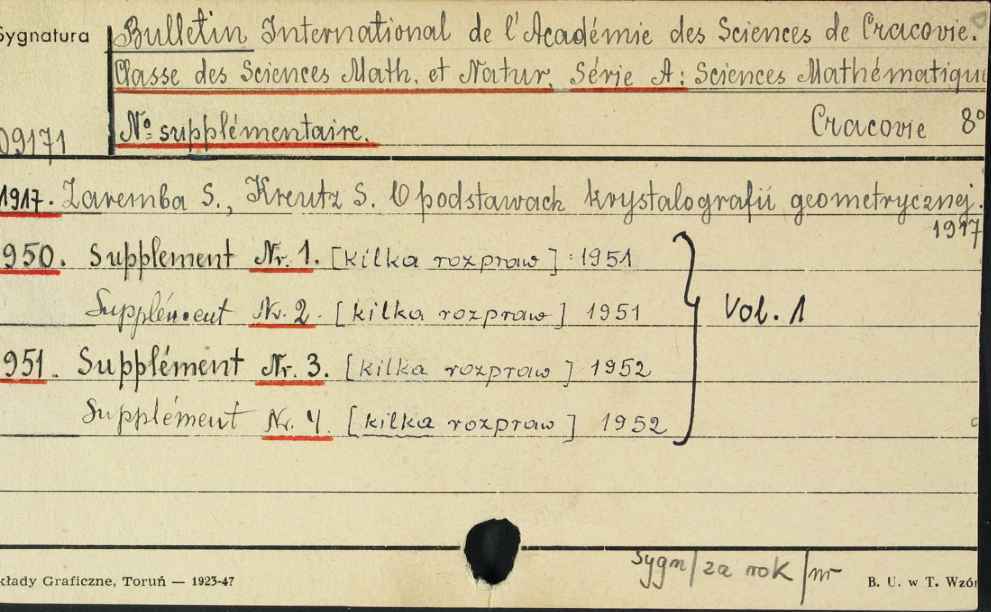 Sygnatura Bulletin International de l'Académie des Sciences de Cracovie.
Classe des Sciences Math. et Natur. Série A: Sciences Mathématiqu
09171 Nº supplémentaire. Cracovie 8º
1917. Zaremba S., Kreutz S. O podstawach krystalografii geometrycznej.
1917
950. Supplement Nr. 1. [kilka rozpraw] 1951
Supplément Nr. 2. [kilka rozpraw] 1951 Vol. 1
951. Supplément Nr. 3. [kilka rozpraw] 1952
Supplément Nr. 4. [kilka rozpraw] 1952
Sygn/za rok/nr
kłady Graficzne, Toruń — 1923-47 B. U. w T. Wzór